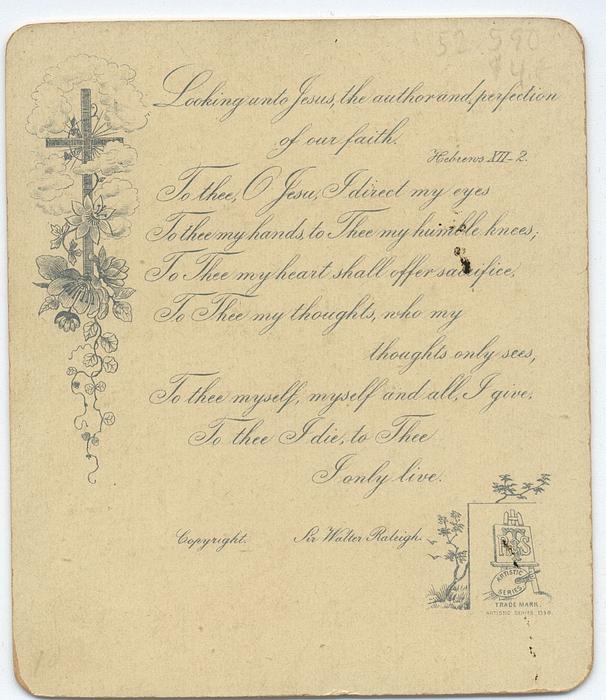 52.590
Looking unto Jesus, the author and perfection
of our faith.
Hebrews XII-2.
To thee, O Jesu, I direct my eyes
To thee my hands, to Thee my humble knees;
To Thee my heart shall offer sacrifice,
To Thee my thoughts, who my
thoughts only sees,
To thee myself, myself and all, I give;
To thee I die, to Thee
I only live.
Copyright. Sir Walter Raleigh.
ARTISTIC
SERIES
TRADE MARK.
ARTISTIC SERIES